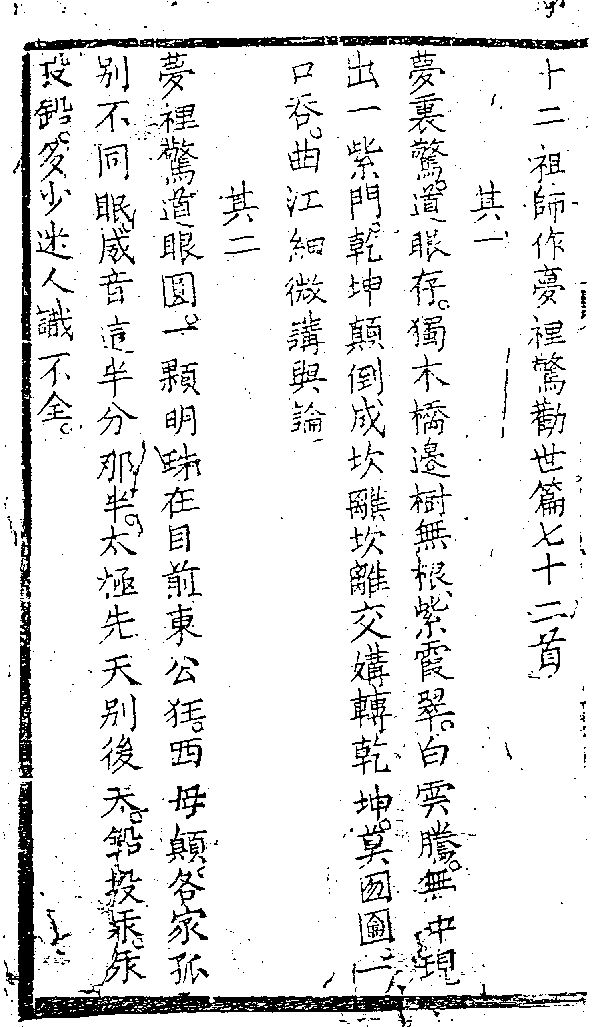 十二祖師作夢裡驚勸世篇七十二首
其一
夢裏驚。道眼存。獨木橋邊樹無根。紫霞翠。白雲騰。無中現
出一紫門。乾坤顛倒成坎離。坎離交媾轉乾坤。莫囫圇一
口吞。曲江細微講與論。
其二
夢裡驚道眼圓。一顆明珠在目前。東公狂。西母顛。各家孤
別不同眠。威音這半分那半。太極先天別後天。鉛投汞。汞
投鉛。多少迷人識不全。